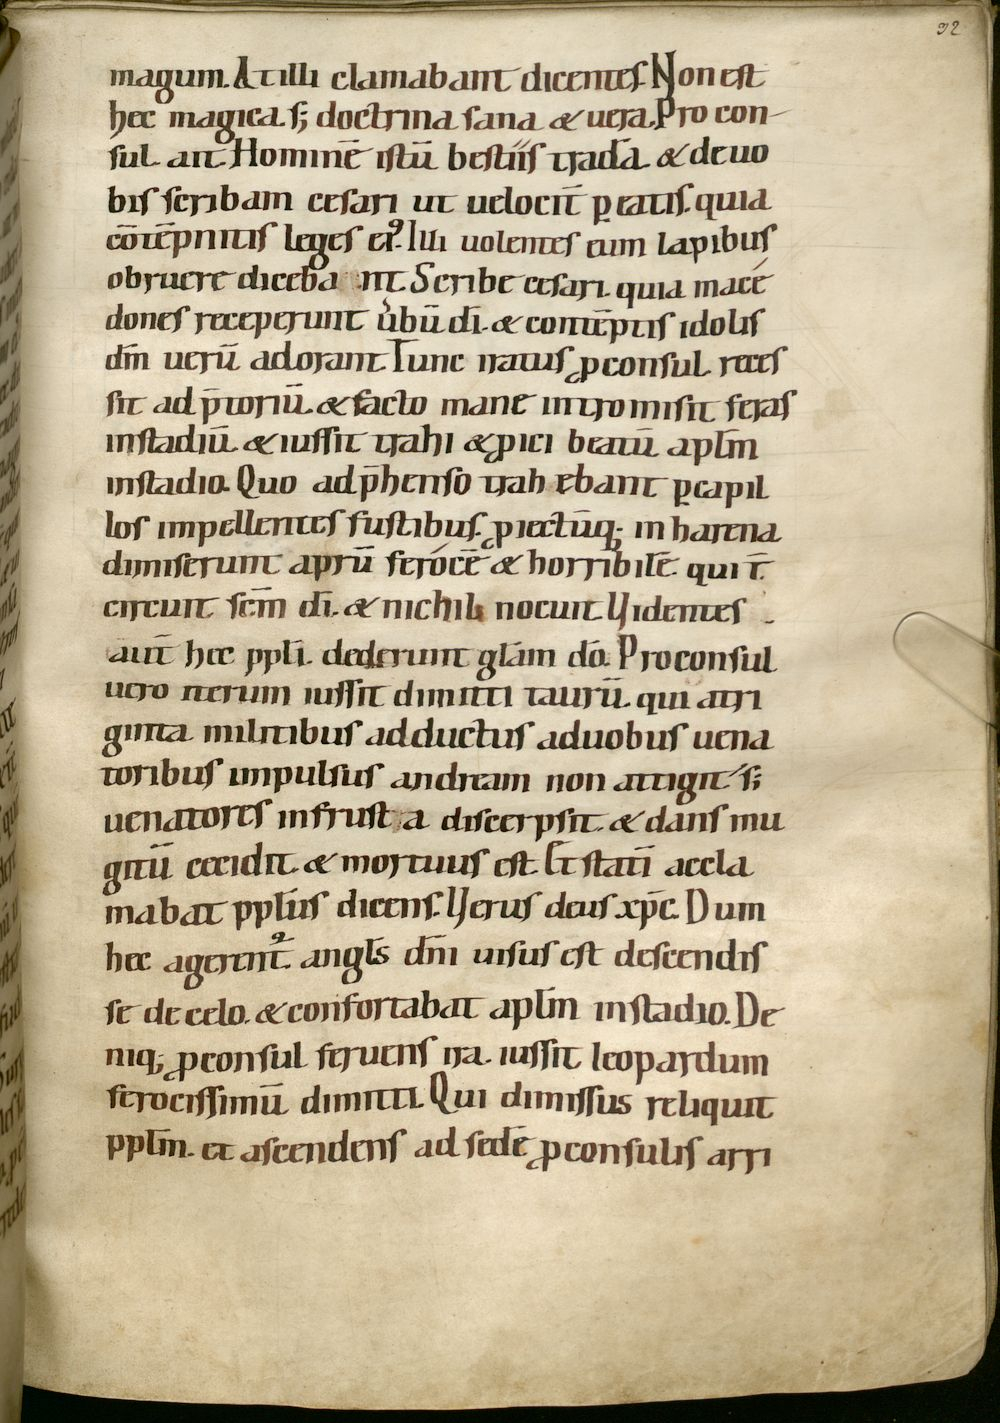 32
magum. At illi clamabant dicentes. Non est
hec magica. s; doctrina sana & uera. Pro con-
sul ait. Hominē istū bestiis tradā. & de uo
bis scribam cesari ut uelocit̄ ꝑeatis. quia
cōtēpnitis leges eiꝰ. Illi uolentes eum lapibus
obruere diceba nt. Scribe cesari. quia mace
dones receperunt ûbū dī. & contēptis idolis
dm̄ uerū adorant. Tunc iratus ꝓconsul reces
sit ad p̄toriū. & facto mane intromisit feras
instadiū. & iussit trahi & ꝓici beatū apłm
instadio. Quo adp̄henso trah ebant ꝑ capil
los impellentes fustibus. ꝓiectūq; in harena
dimiserunt aprū ferocē & horribilē. qui t̄
circuit scm̄ dī. & nichil nocuit. Uidentes
aut̄ hec ppłi. dederunt głam dō. Proconsul
uero iterum iussit dimitti taurū. qui atri
ginta militibus adductus aduobus uena
toribus impulsus andream non attigit s;
uenatores infrust a discerpsit. & dans mu
gitū cecidit & mortuus est. Et statī accla
mabat ppłus dicens. Uerus deus xp̄c. Dum
hec agerentꝰ. angłs dm̄i uisus est descendis
se de celo. & confortabat apłm instadio. De
niq; ꝓconsul feruens ira. iussit leopardum
ferocissimū dimitti. Qui dimissus reliquit
ppłm. et ascendens ad sedē ꝓconsulis arri